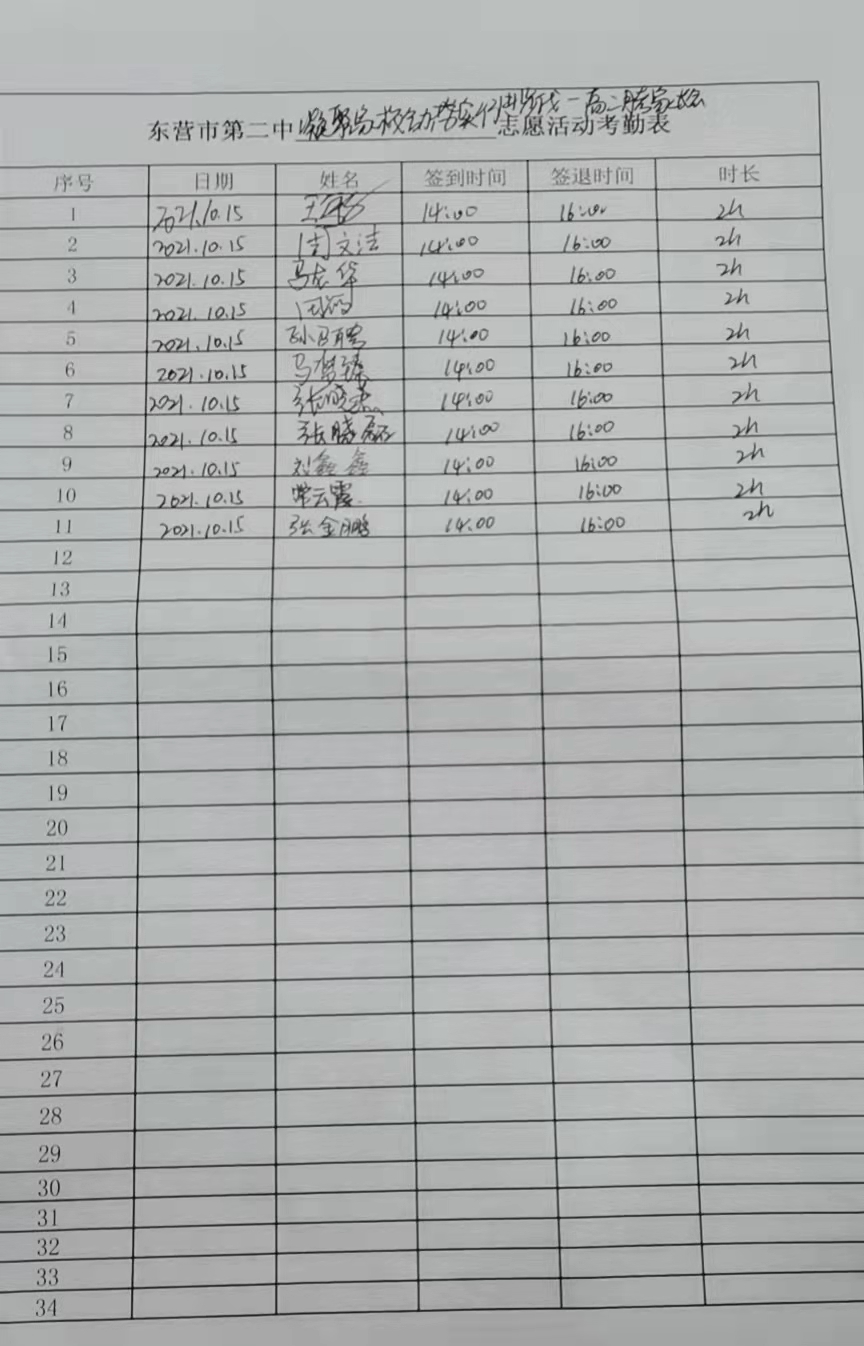 东营市第二中凝聚家校合力 志愿活动考勤表
序号 日期 姓名 签到时间 签退时间 时长
1 2021.10.15 王 14:00 16:00 2h
2 2021.10.15 周文洁 14:00 16:00 2h
3 2021.10.15 马龙华 14:00 16:00 2h
4 2021.10.15 14:00 16:00 2h
5 2021.10.15 孙 14:00 16:00 2h
6 2021.10.15 马梦臻 14:00 16:00 2h
7 2021.10.15 张晓杰 14:00 16:00 2h
8 2021.10.15 张腾磊 14:00 16:00 2h
9 2021.10.15 刘鑫鑫 14:00 16:00 2h
10 2021.10.15 常云霞 14:00 16:00 2h
11 2021.10.15 张金鹏 14:00 16:00 2h
12
13
14
15
16
17
18
19
20
21
22
23
24
25
26
27
28
29
30
31
32
33
34